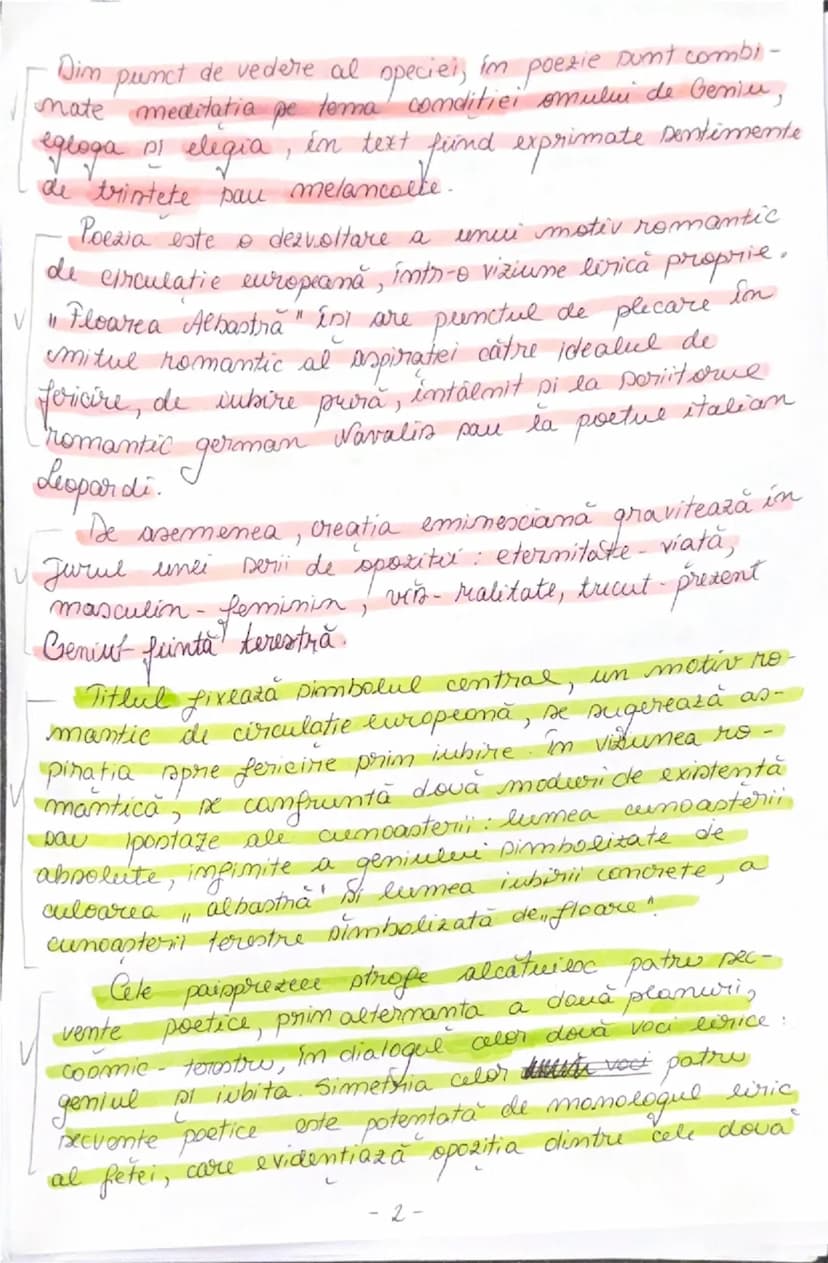 Din punct de vedere al speciei, în poezie sunt combi-
nate meditația pe tema condiției omului de Geniu,
egloga și elegia, în text fiind exprimate sentimente
de tristețe sau melancolie.
Poezia este o dezvoltare a unui motiv romantic
de circulație europeană, într-o viziune lirică proprie.
"Floarea Albastră" își are punctul de plecare în
mitul romantic al aspirației către idealul de
fericire, de iubire pură, întâlnit și la scriitorul
romantic german Navalis sau la poetul italian
Leopardi.
De asemenea, creația eminesciană gravitează în
jurul unei serii de opoziții: eternitate - viață,
masculin - feminin, vis - realitate, trecut - prezent
Geniul - ființă terestră.
Titlul fixează simbolul central, un motiv ro-
mantic de circulație europeană, se sugerează as-
pirația spre fericire prin iubire. În viziunea ro-
mantică, se confruntă două moduri de existență
sau ipostaze ale cunoașterii: lumea cunoașterii
absolute, infinite a geniului simbolizate de
culoarea "albastră" și lumea iubirii concrete, a
cunoașterii terestre simbolizată de "floare".
Cele paisprezece strofe alcătuiesc patru sec-
vențe poetice, prin alternanța a două planuri,
cosmic - terestru, în dialogul celor două voci lirice:
geniul și iubita. Simetria celor patru
secvențe poetice este potențată de monologul liric
al fetei, care evidențiază opoziția dintre cele două
- 2 -